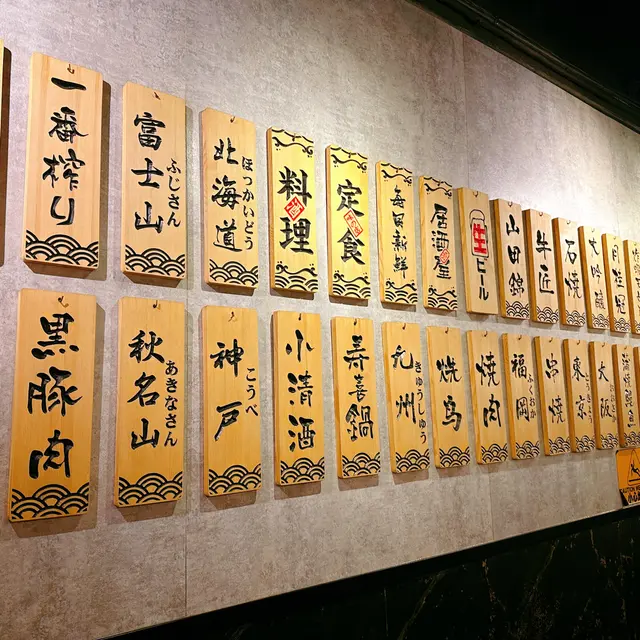 一番搾り
富士山 ふじさん
北海道 ほつかいどう
料理
定食
毎日新鮮
居酒屋
生ビール
山田錦
牛匠
石焼
大吟醸
月桂冠
黒豚肉
秋名山 あきなさん
神戸 こうべ
小清酒
寿喜鍋
九州 きゅうしゅう
焼鸟
焼肉
福岡 ふくおか
串焼
東京
大阪